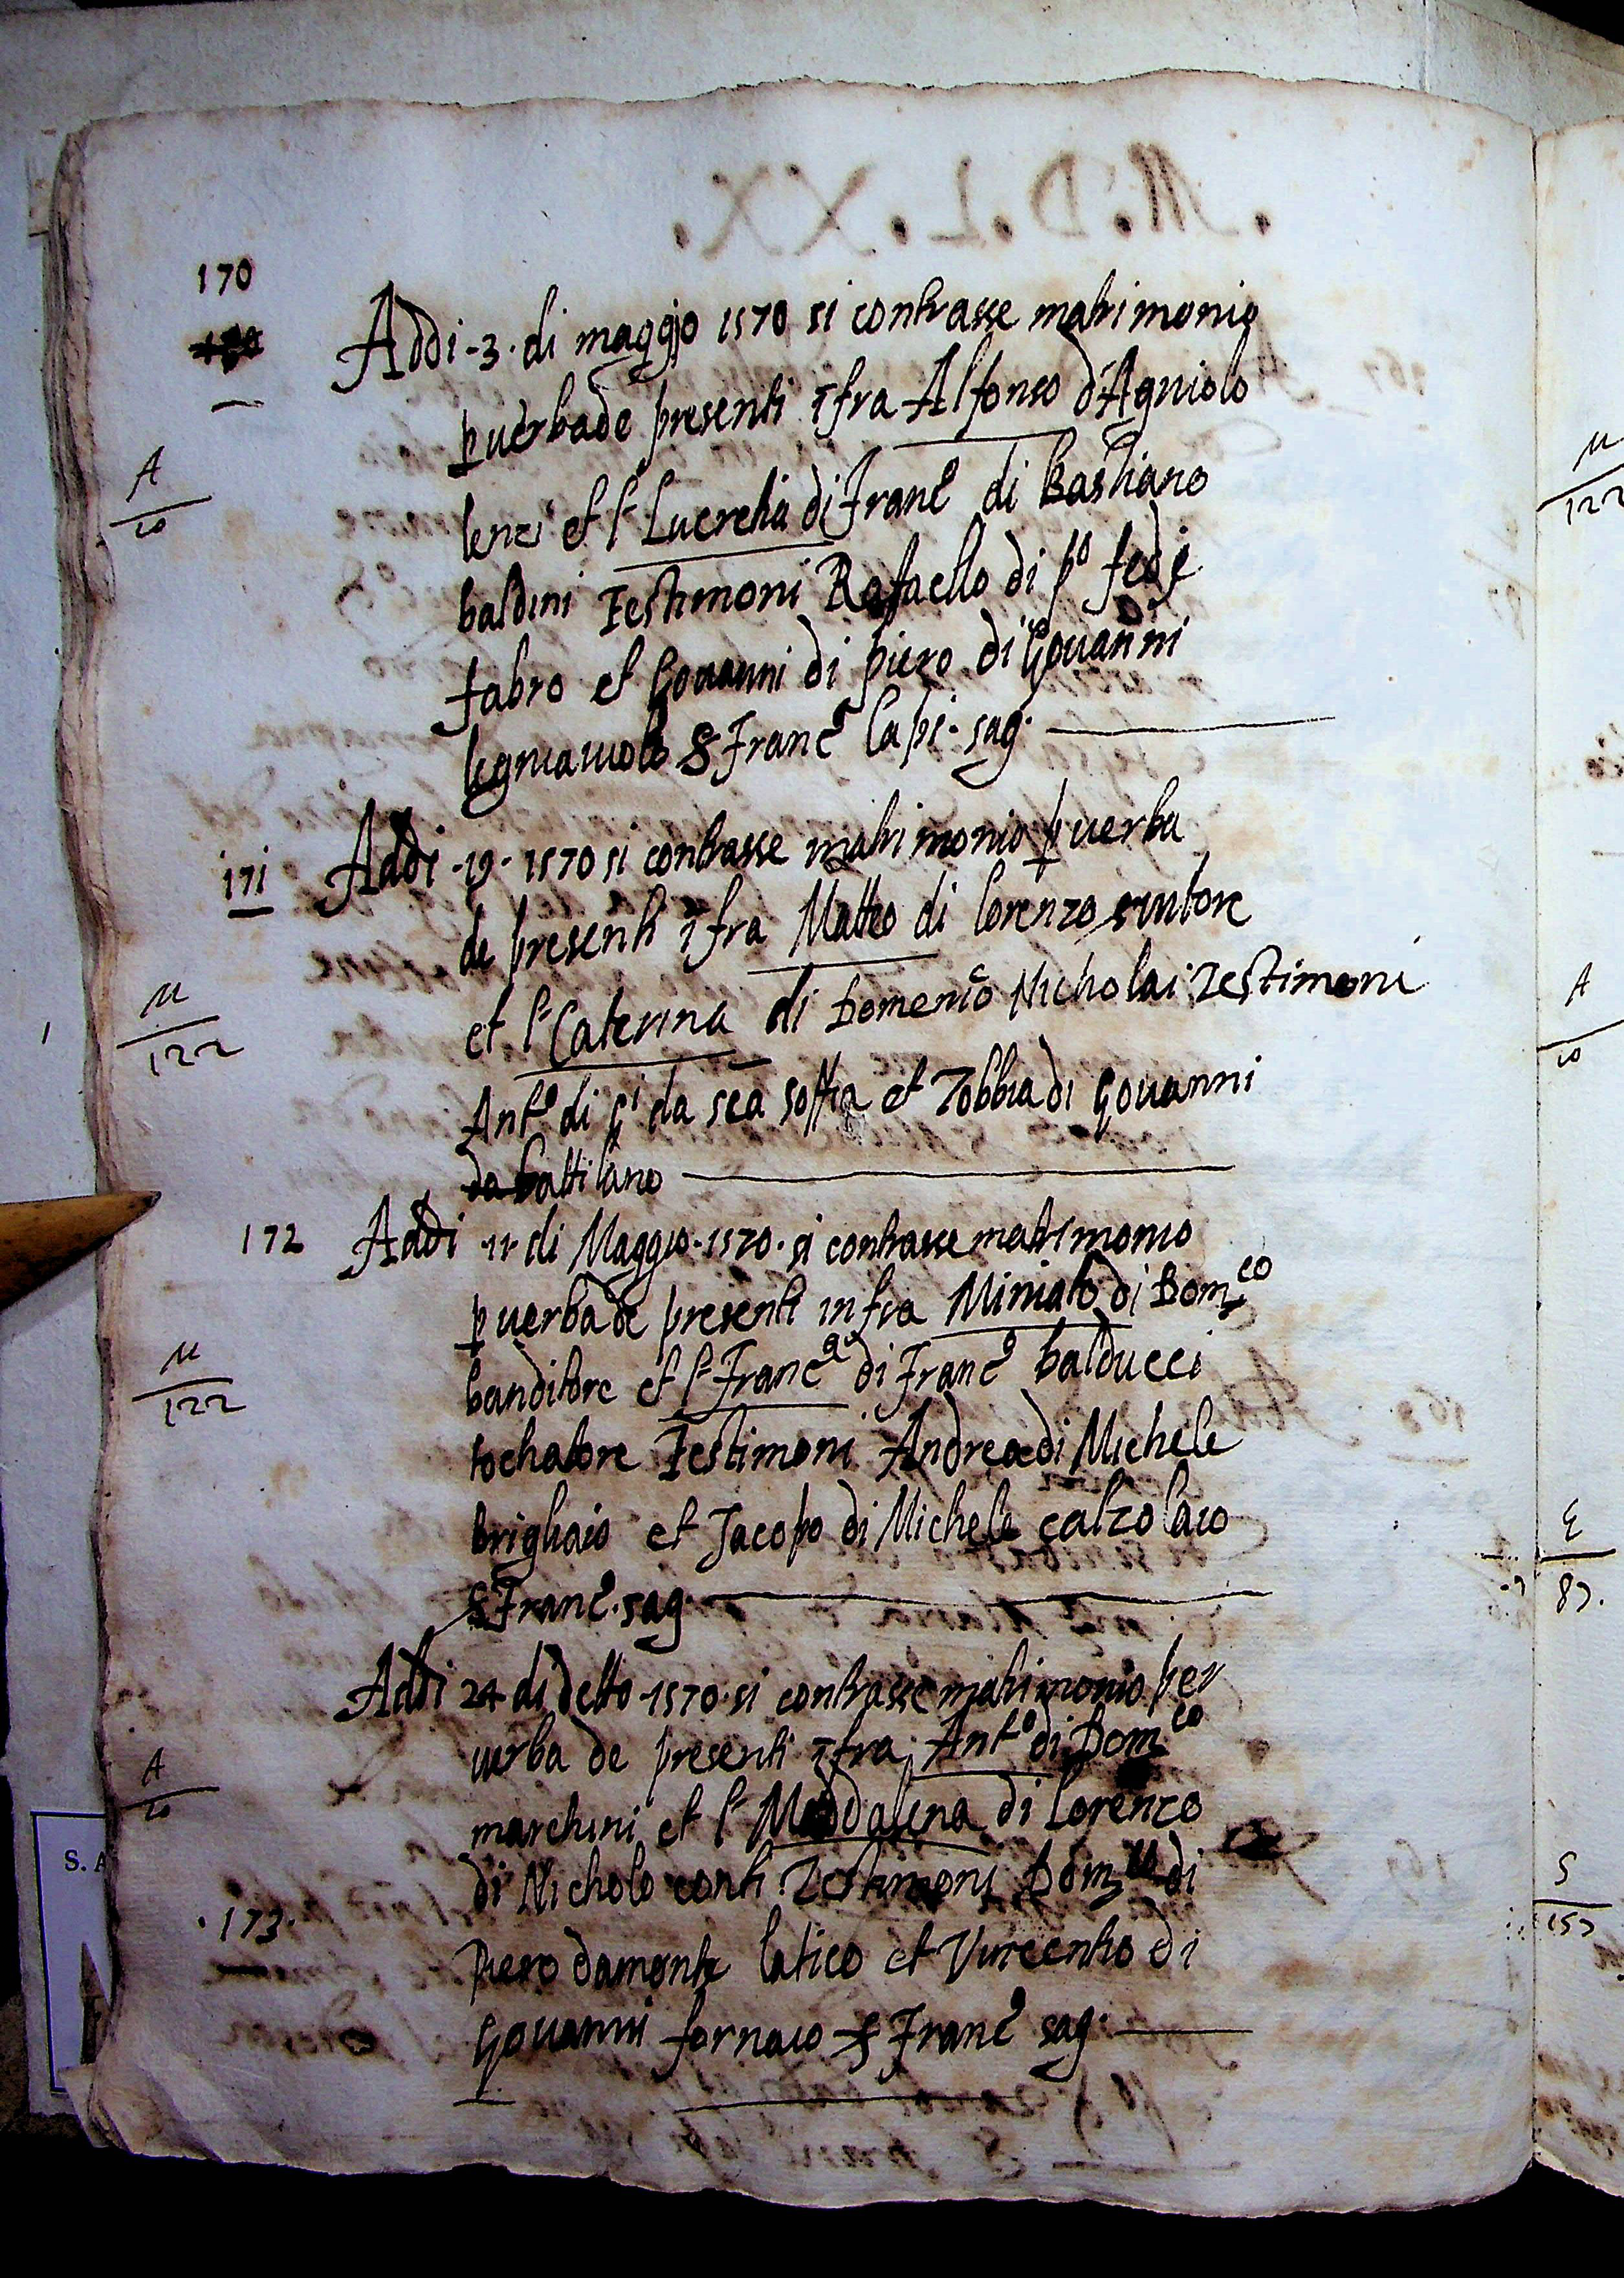 170
Addi -3. di maggio 1570 si contrasse matrimonio
p uerba de presenti ifra Alfonso d'Agniolo
A
10
lenzi et l^a Lucretia di Franc^o di Bastiano
baldini Testimoni Raffaello di p^o
fabro et Giovanni di piero di Giovanni
legniaiuolo S Franc^o lapi. sag.
171
Addi -19- 1570 si contrasse matrimonio p uerba
de presenti ifra Matteo di lorenzo
M
122
et l^a Caterina di Domenico Nicholai Testimoni
Ant^o di da sca et Tobbia di Giovanni
da battilano
172
Addi -11- di Maggio .1570. si contrasse matrimonio
p uerba de presenti infra Miniato di Dom^co
M
122
banditore et l^a Franc^a di Franc^o balducci
tochatore Testimoni Andrea di Michele
brigliaio et Jacopo di Michele calzolaio
S Franc^o. sag.
Addi 24 di detto .1570. si contrasse matrimonio per
uerba de presenti ifra Ant^o di Dom^co
A
10
marchini et l^a Maddalena di Lorenzo
di Nicholo conti Testimoni Dom^co di
.173.
Piero damonte latico et Vincentio di
Giovanni fornaio S Franc^o sag.
M
122
A
10
E
87.
S
157
S. A
M.D.L.XX.